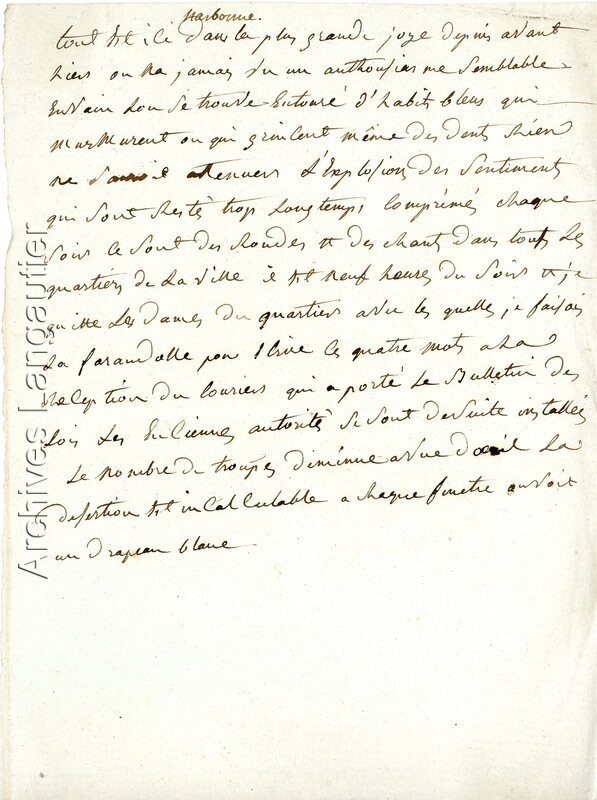 Narbonne.
tout est ici dans la plus grande joye depuis avant
hiers on na jamais vu un anthousiasme semblable
Envain l'on se trouve Entouré d'habit bleus qui
murmurent ou qui grincent même des dents Rien
ne attenuer L'Explosion des Sentiments
qui sont Restés trop longtemps comprimés chaque
soirs ce sont des Rondes et des chants dans touts les
quartiers de la ville il est neuf heures du soirs et je
quitte Les Dames du quartiers avec les quelles je faisais
La farandolle pour Ecrire ces quatre mots a la
Reception du couriers qui a porté Le Bulletin des
Lois Les Enciennes autorités se sont de suite installés
Le nombre de troupes diminue avue d'oeil La
desertion est incalculable a chaque finetre on voit
un drapeau blanc
Archives Langautier